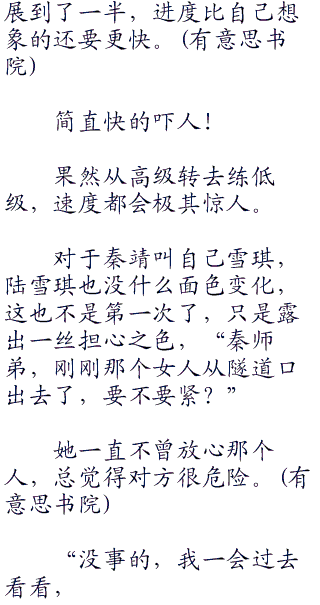 展到了一半，进度比自己想
象的还要更快。(有意思书
院)
简直快的吓人！
果然从高级转去练低
级，速度都会极其惊人。
对于秦靖叫自己雪琪，
陆雪琪也没什么面色变化，
这也不是第一次了，只是露
出一丝担心之色，“秦师
弟，刚刚那个女人从隧道口
出去了，要不要紧？”
她一直不曾放心那个
人，总觉得对方很危险。(有
意思书院)
“没事的，我一会过去
看看，